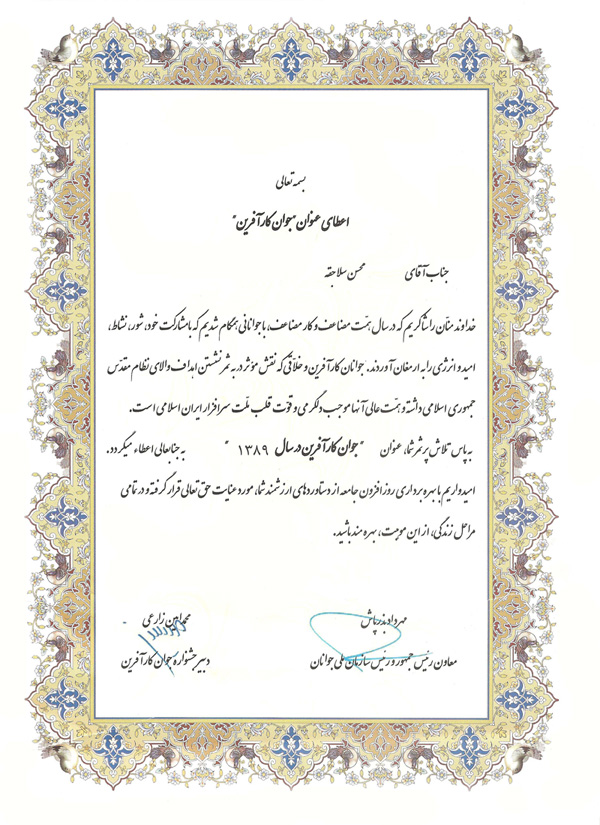 بسمه تعالی
اعطای عنوان "جوان کارآفرین"
جناب آقای محسن سلاجقه
خداوند منان را شاکریم که در سال همّت مضاعف و کار مضاعف، با جوانانی همگام شدیم که با مشارکت خود، شور، نشاط،
امید و انرژی را به ارمغان آوردند. جوانان کارآفرین و خلاقی که نقش مؤثر در به ثمر نشستن اهداف والای نظام مقدّس
جمهوری اسلامی داشته و همّت عالی آنها موجب دلگرمی و قوّت قلب ملّت سرافراز ایران اسلامی است.
به پاس تلاش پرثمر شما، عنوان "جوان کارآفرین در سال ۱۳۸۹" به جنابعالی اعطاء میگردد.
امیدواریم با بهره برداری روزافزون جامعه از دستاوردهای ارزشمند شما، مورد عنایت حق تعالی قرار گرفته و در تمامی
مراحل زندگی، از این موهبت، بهره مند باشید.
مهرداد بذرپاش
معاون رئیس جمهور و رئیس سازمان ملی جوانان
محمدامین زارعی
دبیر جشنواره جوان کارآفرین